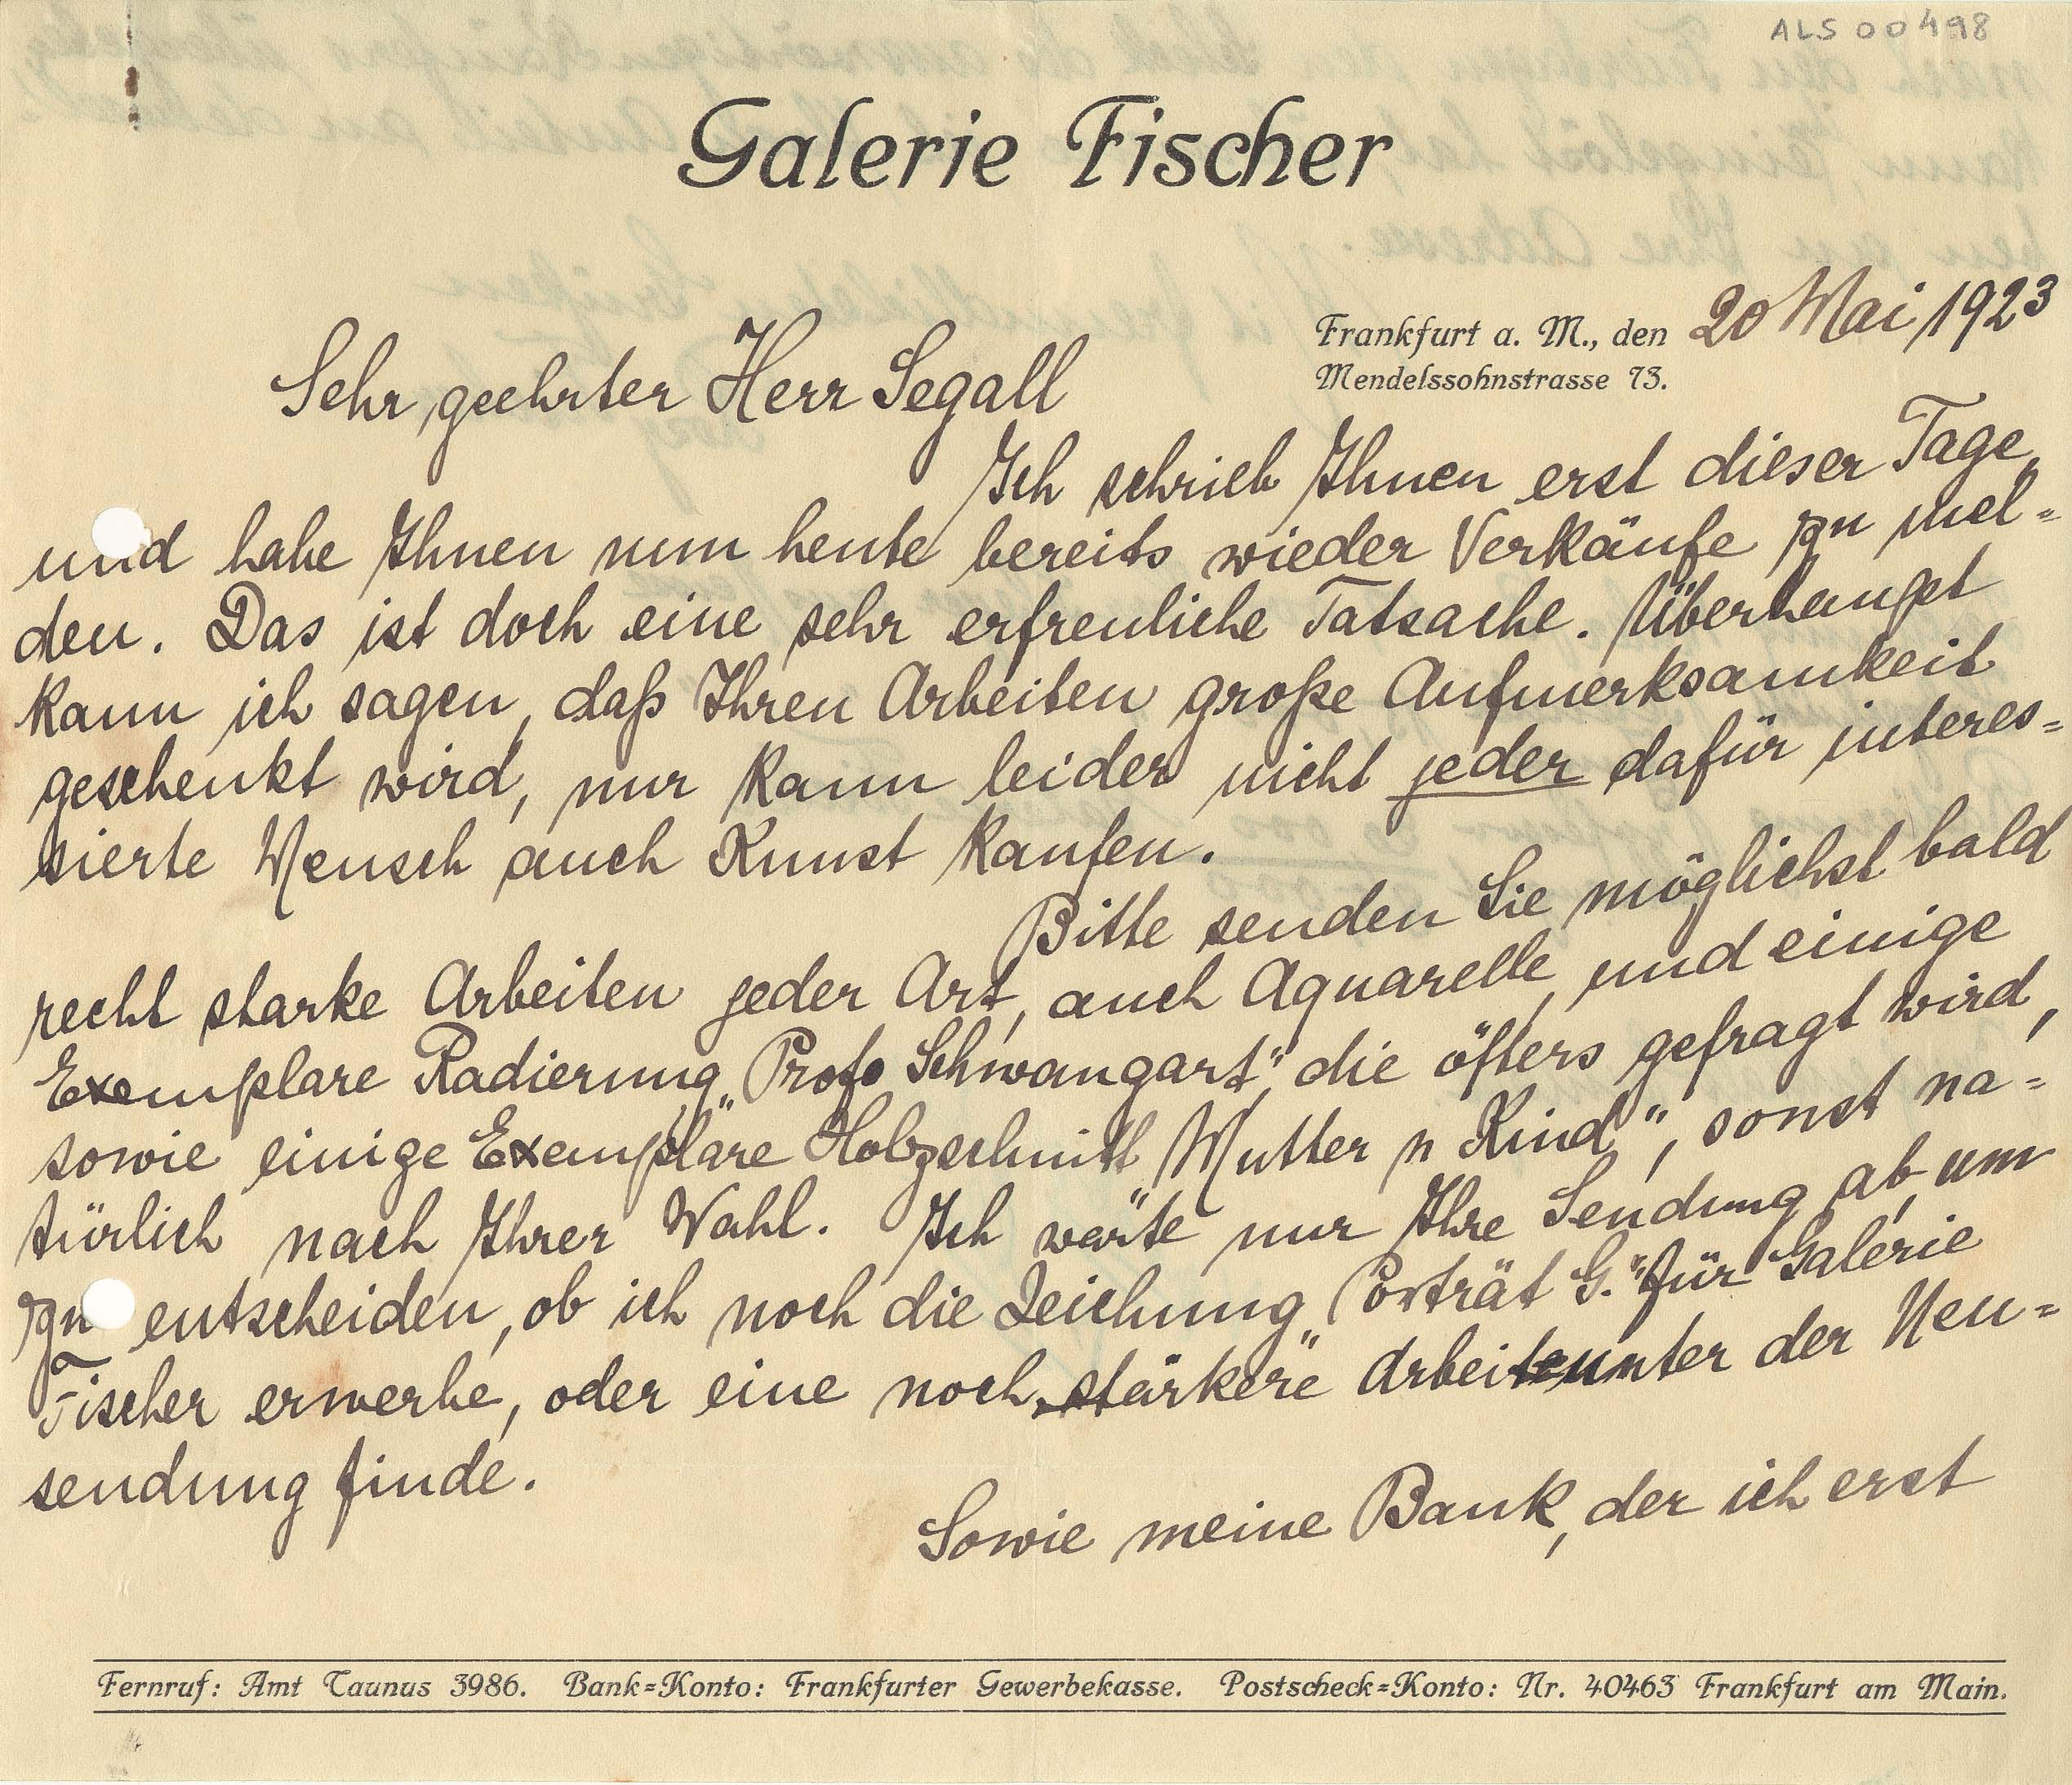 ALS 00498
Galerie Fischer
Frankfurt a. M., den 20 Mai 1923
Mendelssohnstrasse 73.
Sehr geehrter Herr Segall
Ich schrieb Ihnen erst dieser Tage,
und habe Ihnen nun heute bereits wieder Verkäufe zu mel=
den. Das ist doch eine sehr erfreuliche Tatsache. Überhaupt
kann ich sagen, daß Ihren Arbeiten große Aufmerksamkeit
geschenkt wird, nur kann leider nicht jeder dafür interes=
sierte Mensch auch Kunst kaufen.
Bitte senden Sie möglichst bald
recht starke Arbeiten jeder Art, auch Aquarelle, und einige
Exemplare Radierung „Prof. Schwangart", die öfters gefragt wird,
sowie einige Exemplare Holzschnitt „Mutter u Kind", sonst na=
türlich nach Ihrer Wahl. Ich warte nur Ihre Sendung ab, um
zu entscheiden, ob ich noch die Zeichnung „Porträt G." für Galerie
Fischer erwerbe, oder eine noch „stärkere" Arbeit unter der Neu=
sendung finde.
Sowie meine Bank, der ich erst
Fernruf: Amt Taunus 3986. Bank=Konto: Frankfurter Gewerbekasse. Postscheck=Konto: Nr. 40463 Frankfurt am Main.